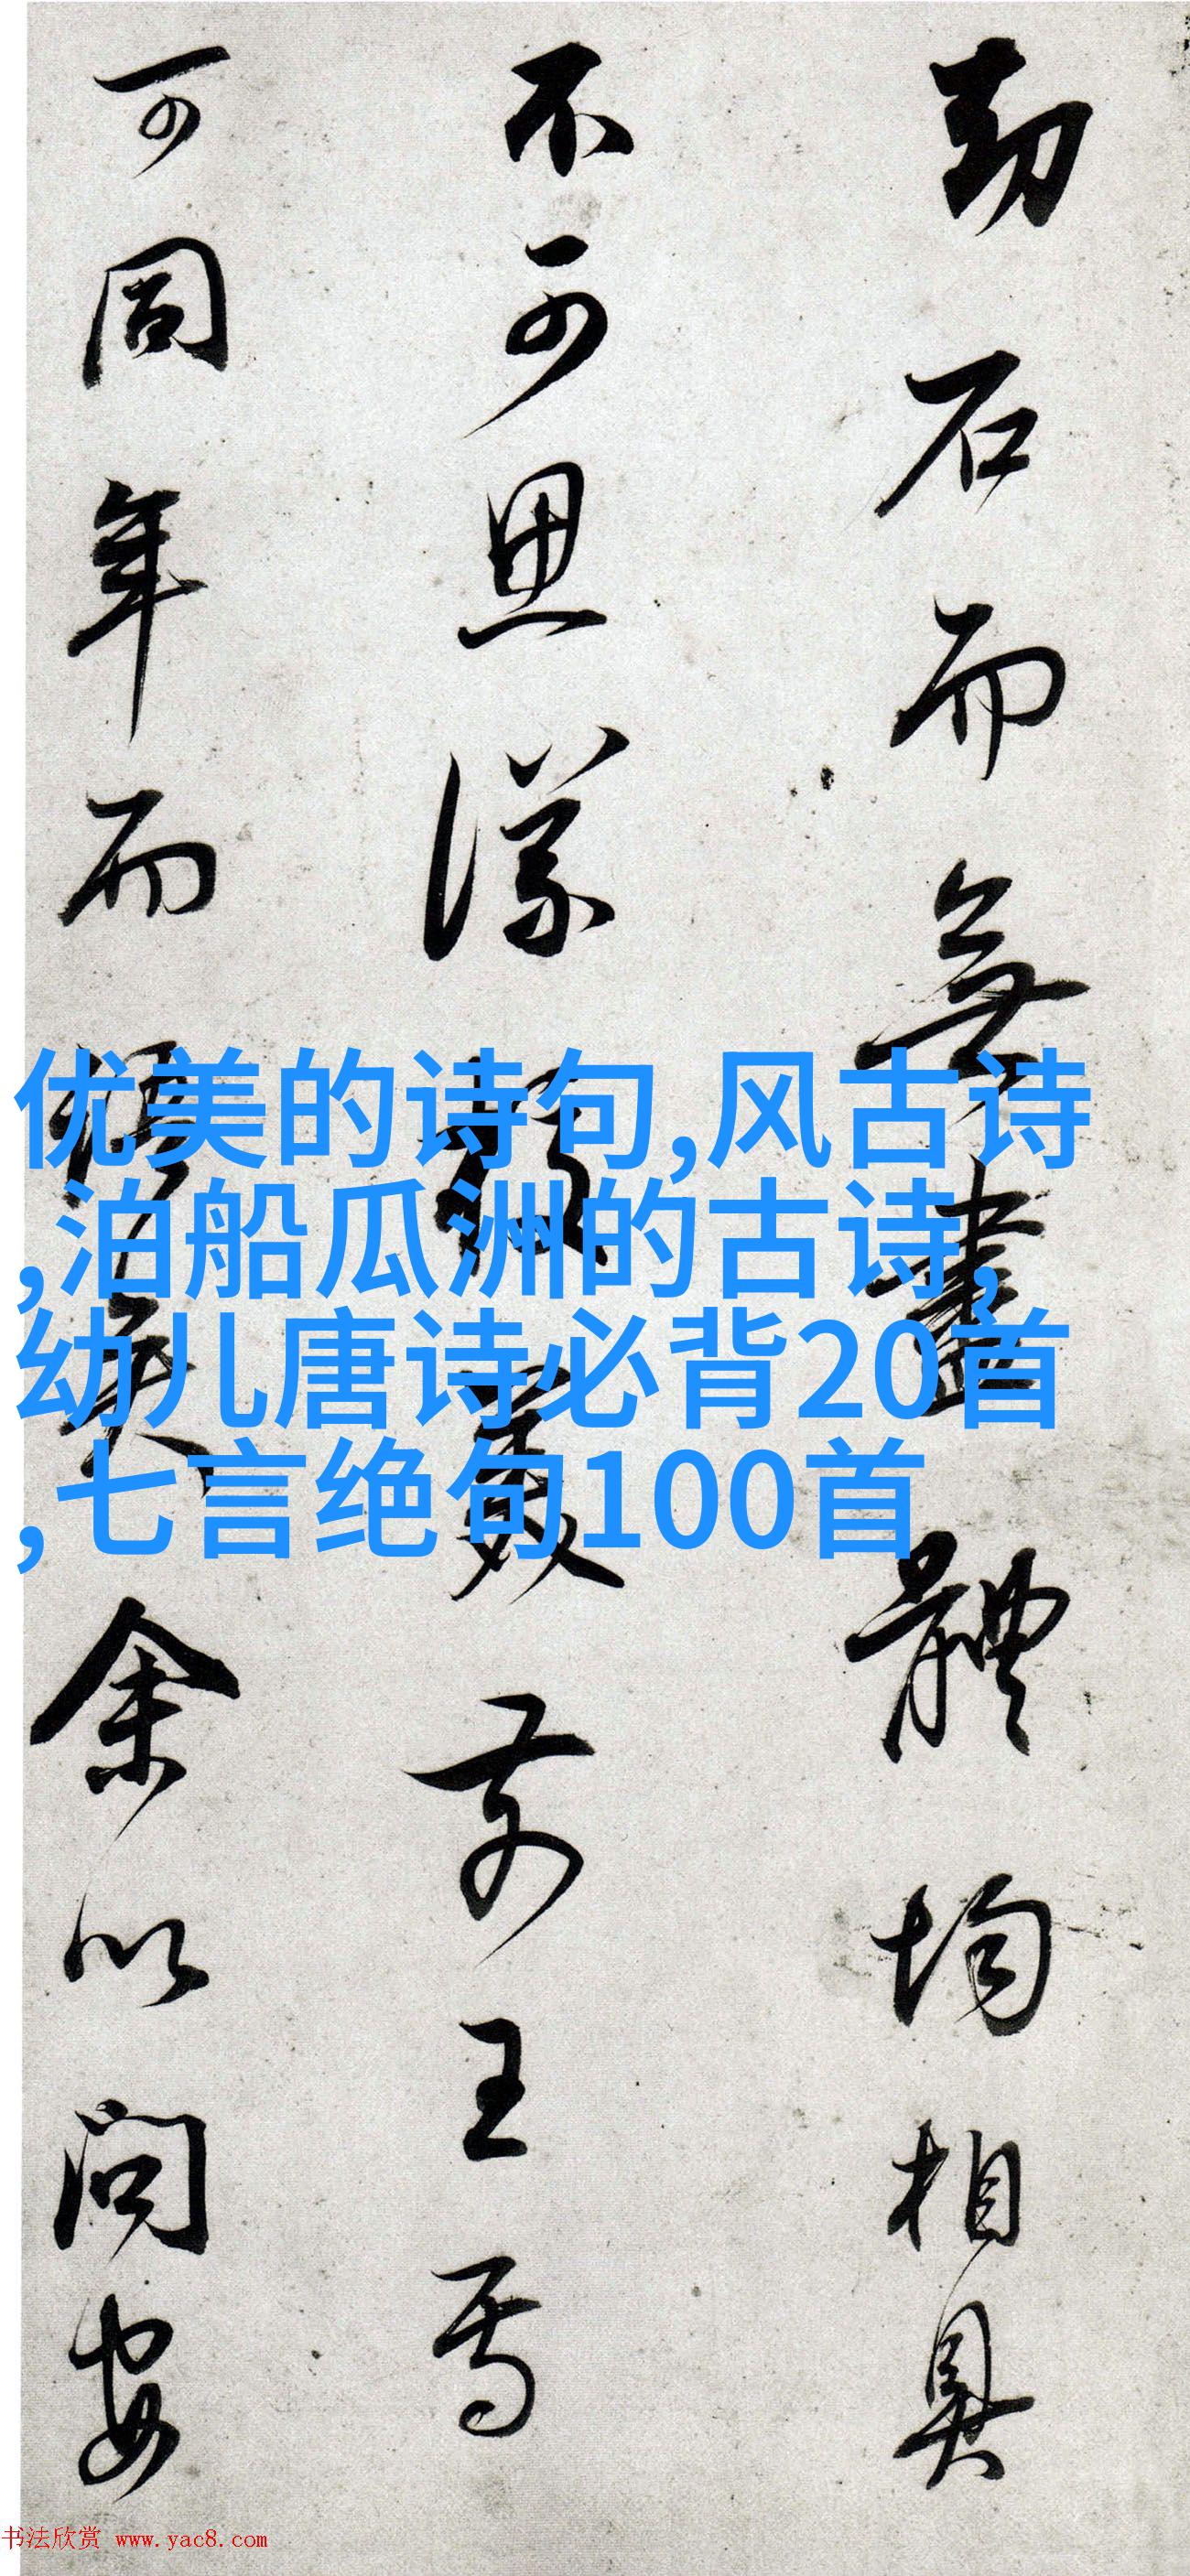 劫石而無盡體均相具
不可思議前王焉
可同年而語矣余以問安
优美的诗句,风古诗
,泊船瓜洲的古诗,
幼儿唐诗必背20首
,七言绝句100首
书法欣赏 www.yac8.com